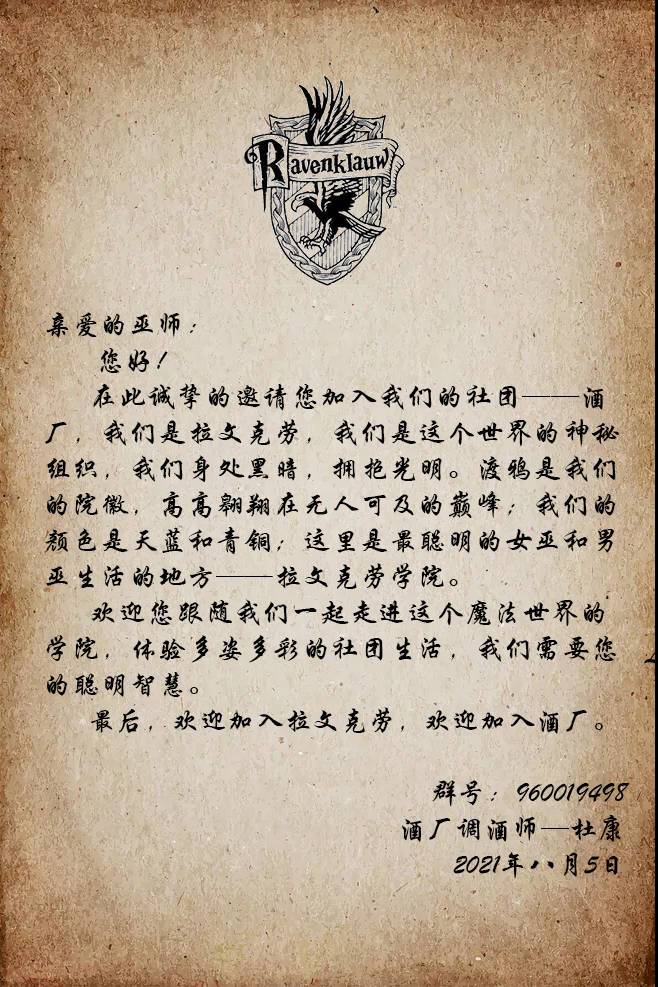 Ravenklauw
亲爱的巫师:
您好!
在此诚挚的邀请您加入我们的社团———酒
厂,我们是拉文克劳,我们是这个世界的神秘
组织,我们身处黑暗,拥抱光明。渡鸦是我们
的院徽,高高翱翔在无人可及的巅峰;我们的
颜色是天蓝和青铜;这里是最聪明的女巫和男
巫生活的地方——拉文克劳学院。
欢迎您跟随我们一起走进这个魔法世界的
学院,体验多姿多彩的社团生活,我们需要您
的聪明智慧。
最后,欢迎加入拉文克劳,欢迎加入酒厂。
群号:960019498
酒厂调酒师—杜康
2021年八月5日